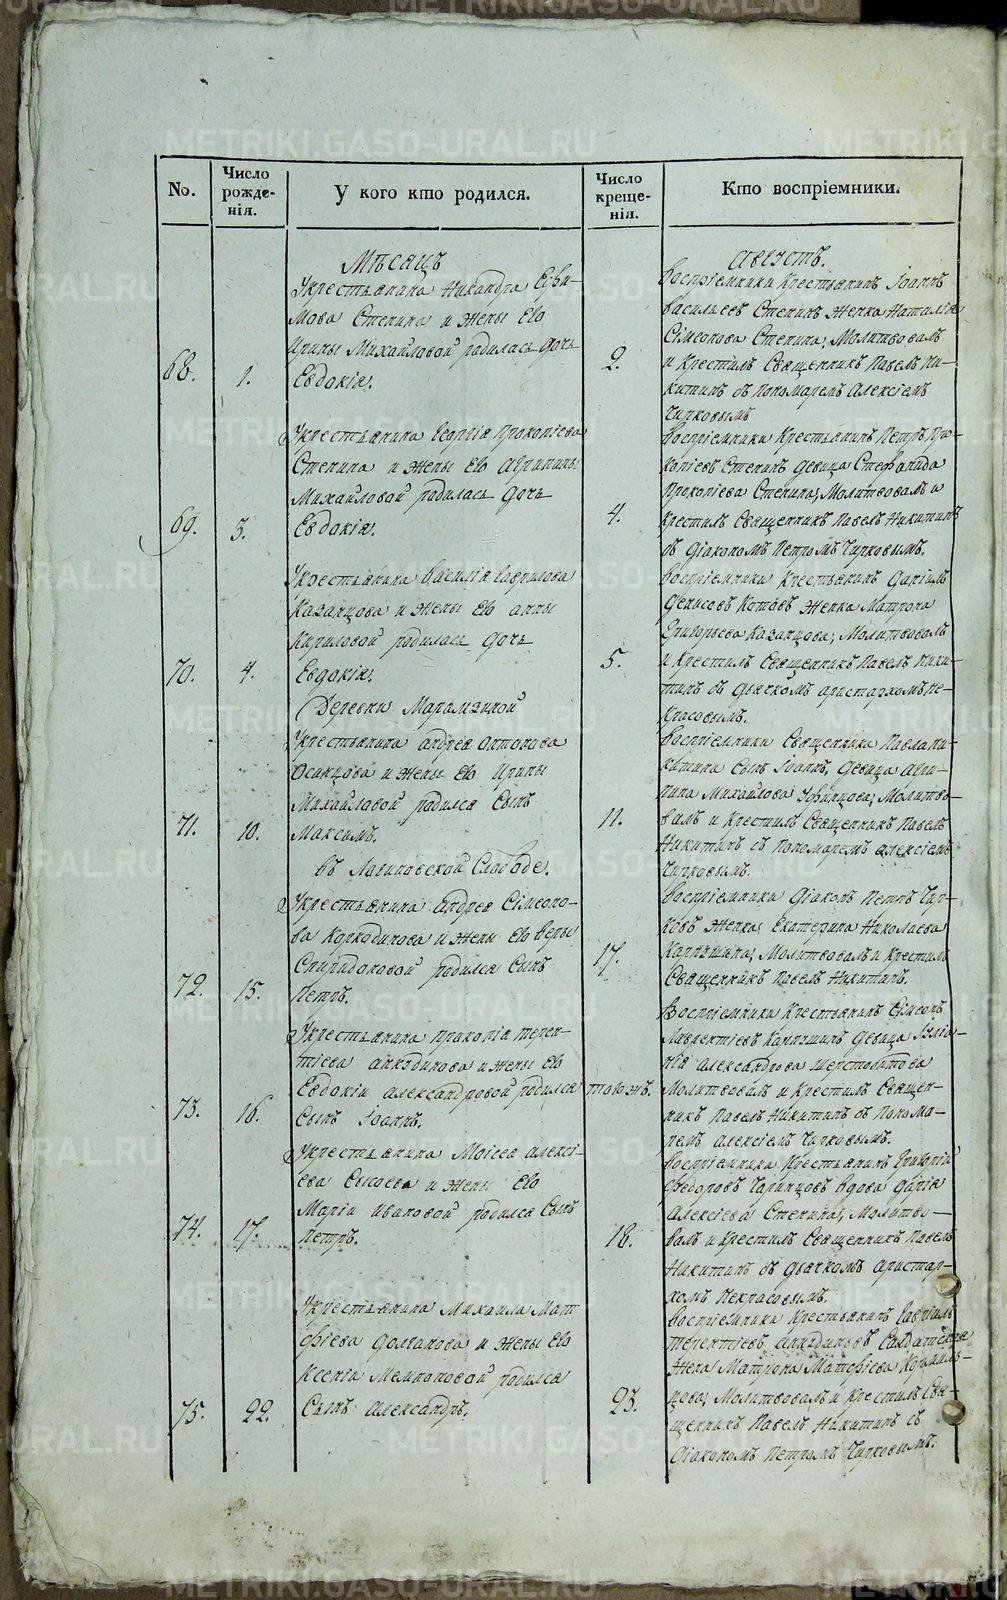 No.
Число рожде-нія.
У кого кто родился.
Число креще-нія.
Кто воспріемники.
Мѣсяцъ
Августъ.
68. 1.
Укрестьянина Никандра Ефи-
мова Степина и жены Его
Ирины Михайловой родилась дочь
Евдокія.
2.
Воспріемники Крестьянинъ Іоаннъ
Васильевъ Степинъ Женка Наталія
Сімеонова Степина, Молитвовалъ
и Крестилъ Священникъ Павелъ Ни-
китинъ съ Пономаремъ Алексіемъ
Чирковымъ
69. 3.
Укрестьянина Георгія Прокопіева
Степина и жены Его Агрипины
Михайловой родилась дочь
Евдокія.
4.
Воспріемники Крестьянинъ Петръ Про-
копіевъ Степинъ Девица Стефанида
Прокопіева Степина, Молитвовалъ и
Крестилъ Священникъ Павелъ Никитинъ
съ Діакономъ Петромъ Чирковымъ.
70. 4.
Укрестьянина Василія Гаврилова
Казанцова и жены Его Анны
Кириловой родилась дочь
Евдокія.
5.
Воспріемники Крестьянинъ Даніилъ
Денисовъ Котовъ Женка Матрона
Григорьева Казанцова, Молитвовалъ
и Крестилъ Священникъ Павелъ Ники-
тинъ съ Дьячкомъ Аристархомъ Не-
красовымъ.
Деревни Марамзиной
71. 10.
Укрестьянина Андрея Антонова
Осинцова и жены Его Ирины
Михайловой родился Сынъ
Максимъ.
11.
Воспріемники Священника Павла Ни-
китина Сынъ Іоаннъ, Девица Агри-
пина Михайлова Уфинцова, Молитво-
валъ и Крестилъ Священникъ Павелъ
Никитинъ съ Пономаремъ Алексіемъ
Чирковымъ.
въ Логиновской Слободе.
72. 15.
Укрестьянина Андрея Сімеоно-
ва Коркодинова и жены Его Веры
Спиридоновой родился Сынъ
Петръ.
17.
Воспріемники Діаконъ Петръ Чир-
ковъ Женка Екатерина Николаева
Карпышина, Молитвовалъ и Крестилъ
Священникъ Павелъ Никитинъ.
73. 16.
Укрестьянина Прокопія Терен-
тіева Анкудинова и жены Его
Евдокіи Александровой родился
Сынъ Іоаннъ.
тогожъ.
Воспріемники Крестьянинъ Сімеонъ
Лаврентіевъ Карпышинъ Девица
Александрова Шерстобитова
Молитвовалъ и Крестилъ Священ-
никъ Павелъ Никитинъ съ Понома-
ремъ Алексіемъ Чирковымъ.
74. 17.
Укрестьянина Моісея Алексі-
ева Сысоева и жены Его
Маріи Ивановой родился Сынъ
Петръ.
18.
Воспріемники Крестьянинъ Григорій
Федоровъ Вдова Дарія
Алексіева Степина, Молитво-
валъ и Крестилъ Священникъ Павелъ
Никитинъ съ Дьячкомъ Аристар-
хомъ Некрасовымъ.
75. 22.
Укрестьянина Михаила Мат
фіева Долганова и жены Его
Ксеніи Мемноновой родился
Сынъ Александръ.
23.
Воспріемники Крестьянинъ Гавріилъ
Терентіевъ Анкудиновъ Салдатская
Жена Матрона Матфіева Кормиль-
цова, Молитвовалъ и Крестилъ Свя-
щенникъ Павелъ Никитинъ съ
Діакономъ Петромъ Чирковымъ.
METRIKI.GASO-URAL.RU